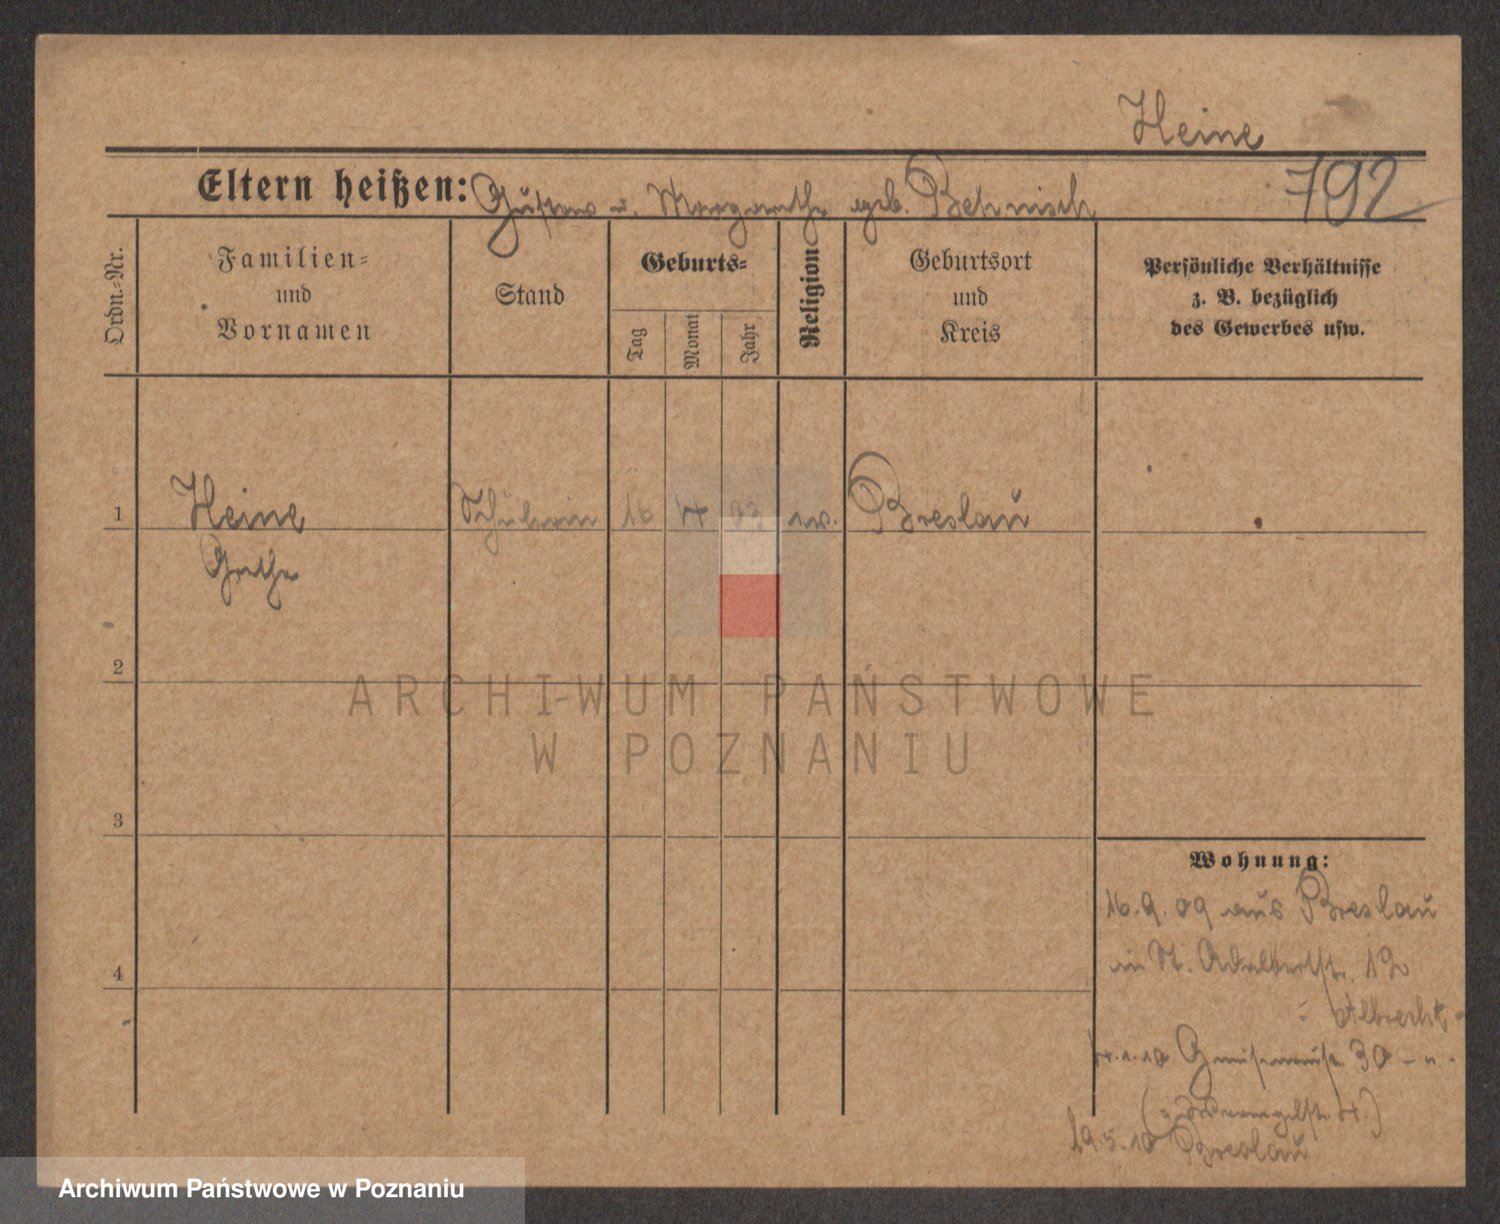 Heine
792
Eltern heißen: Gustav u. Margarethe geb. Behnisch
Ordn.-Nr.
Familien-
und
Vornamen
Stand
Geburts-
Tag
Monat
Jahr
Religion
Geburtsort
und
Kreis
Persönliche Verhältnisse
z. B. bezüglich
des Gewerbes usw.
1
Heine
Grethe
Schülerin
16
03
Breslau
2
3
4
Wohnung:
16.9.09 aus Breslau
in St. Adalbertstr.
Albrecht
30
19.5.10 Breslau
ARCHIWUM PAŃSTWOWE
W POZNANIU
Archiwum Państwowe w Poznaniu